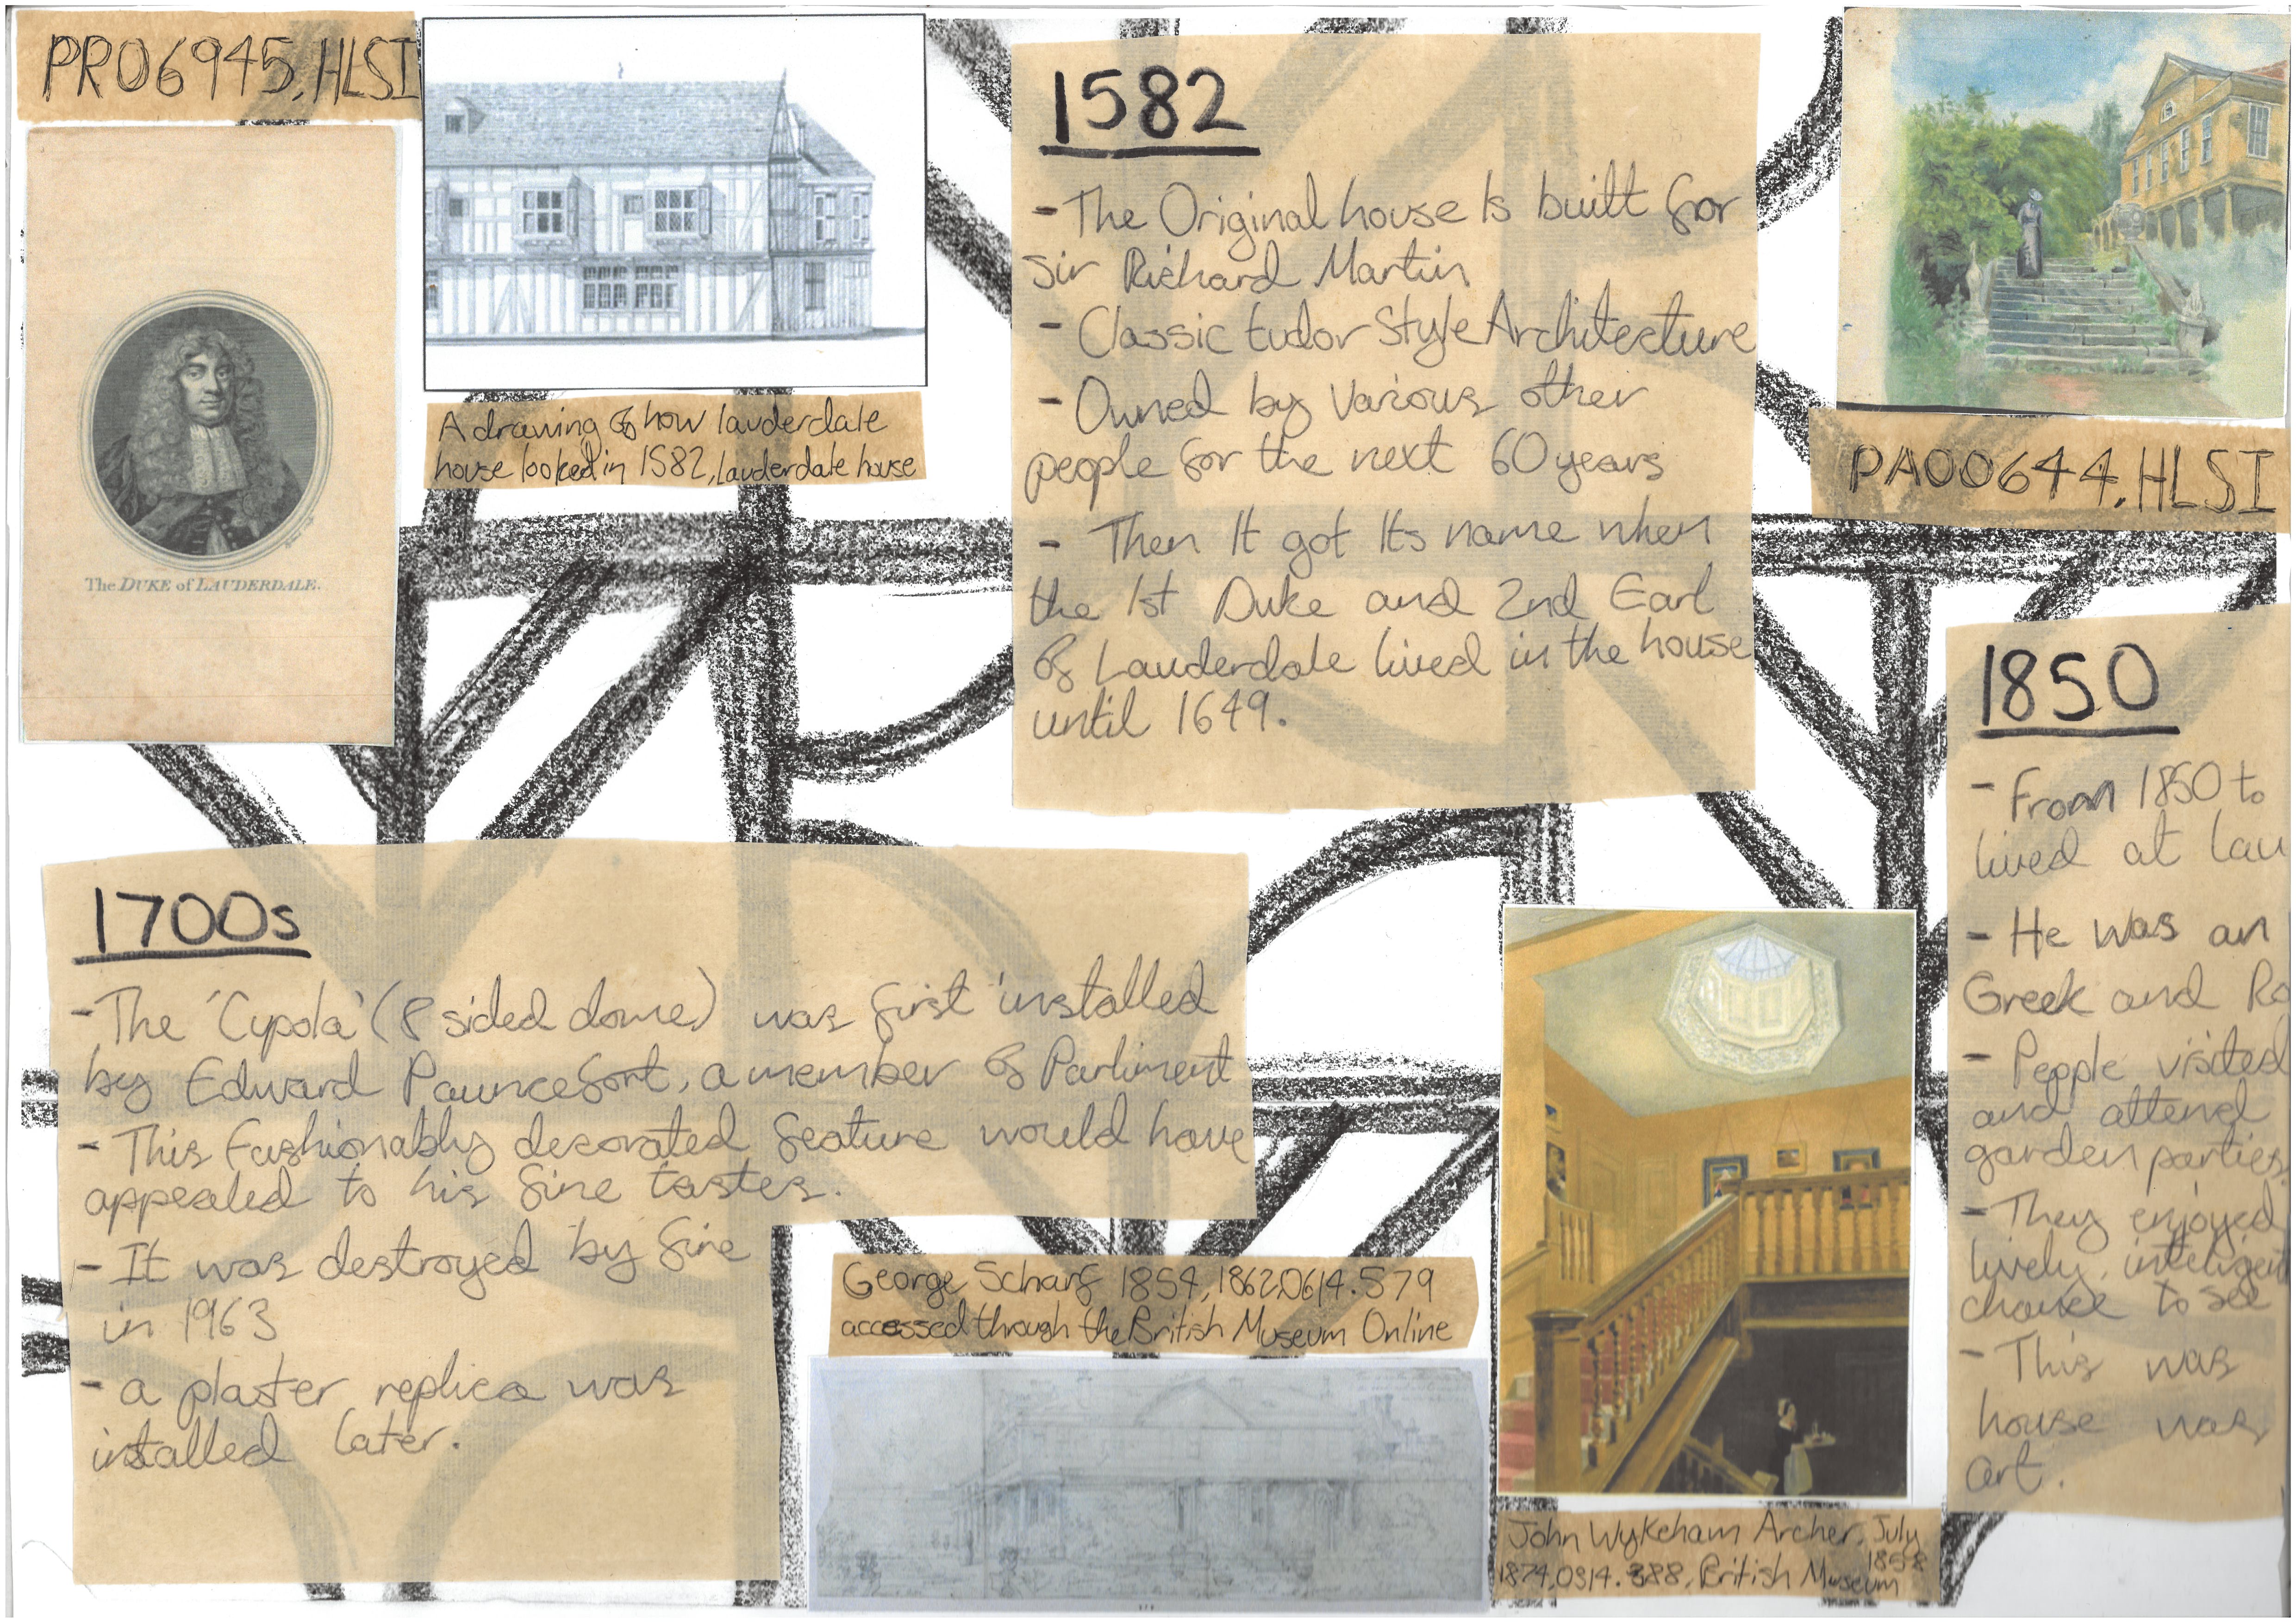 PR06945, HLSI
The DUKE of LAUDERDALE.
A drawing of how lauderdale
house looked in 1582, lauderdale house
1582
- The Original house Is built for
sir Richard Martin
- Classic tudor Style Architecture
- Owned by various other
people for the next 60 years
- Then It got Its name when
the 1st Duke and 2nd Earl
of Lauderdale lived in the house
until 1649.
PA00644, HLSI
1700s
- The 'Cypola' (8 sided dome) was first installed
by Edward Pauncefort, a member of Parliment
- This fashionably decorated feature would have
appealed to his fine tastes.
- It was destroyed by fire
in 1963
- a plaster replica was
installed later.
George Scharf 1854, 1862,0614.579
accessed through the British Museum Online
John Wykeham Archer, July
1858
1874,0314.388, British Museum
1850
- From 1850 to
lived at Lau
- He was an
Greek and Ro
- People visited
and attend
garden parties
- They enjoyed
lively, inteligent
chance to see
- This was
house was
art.